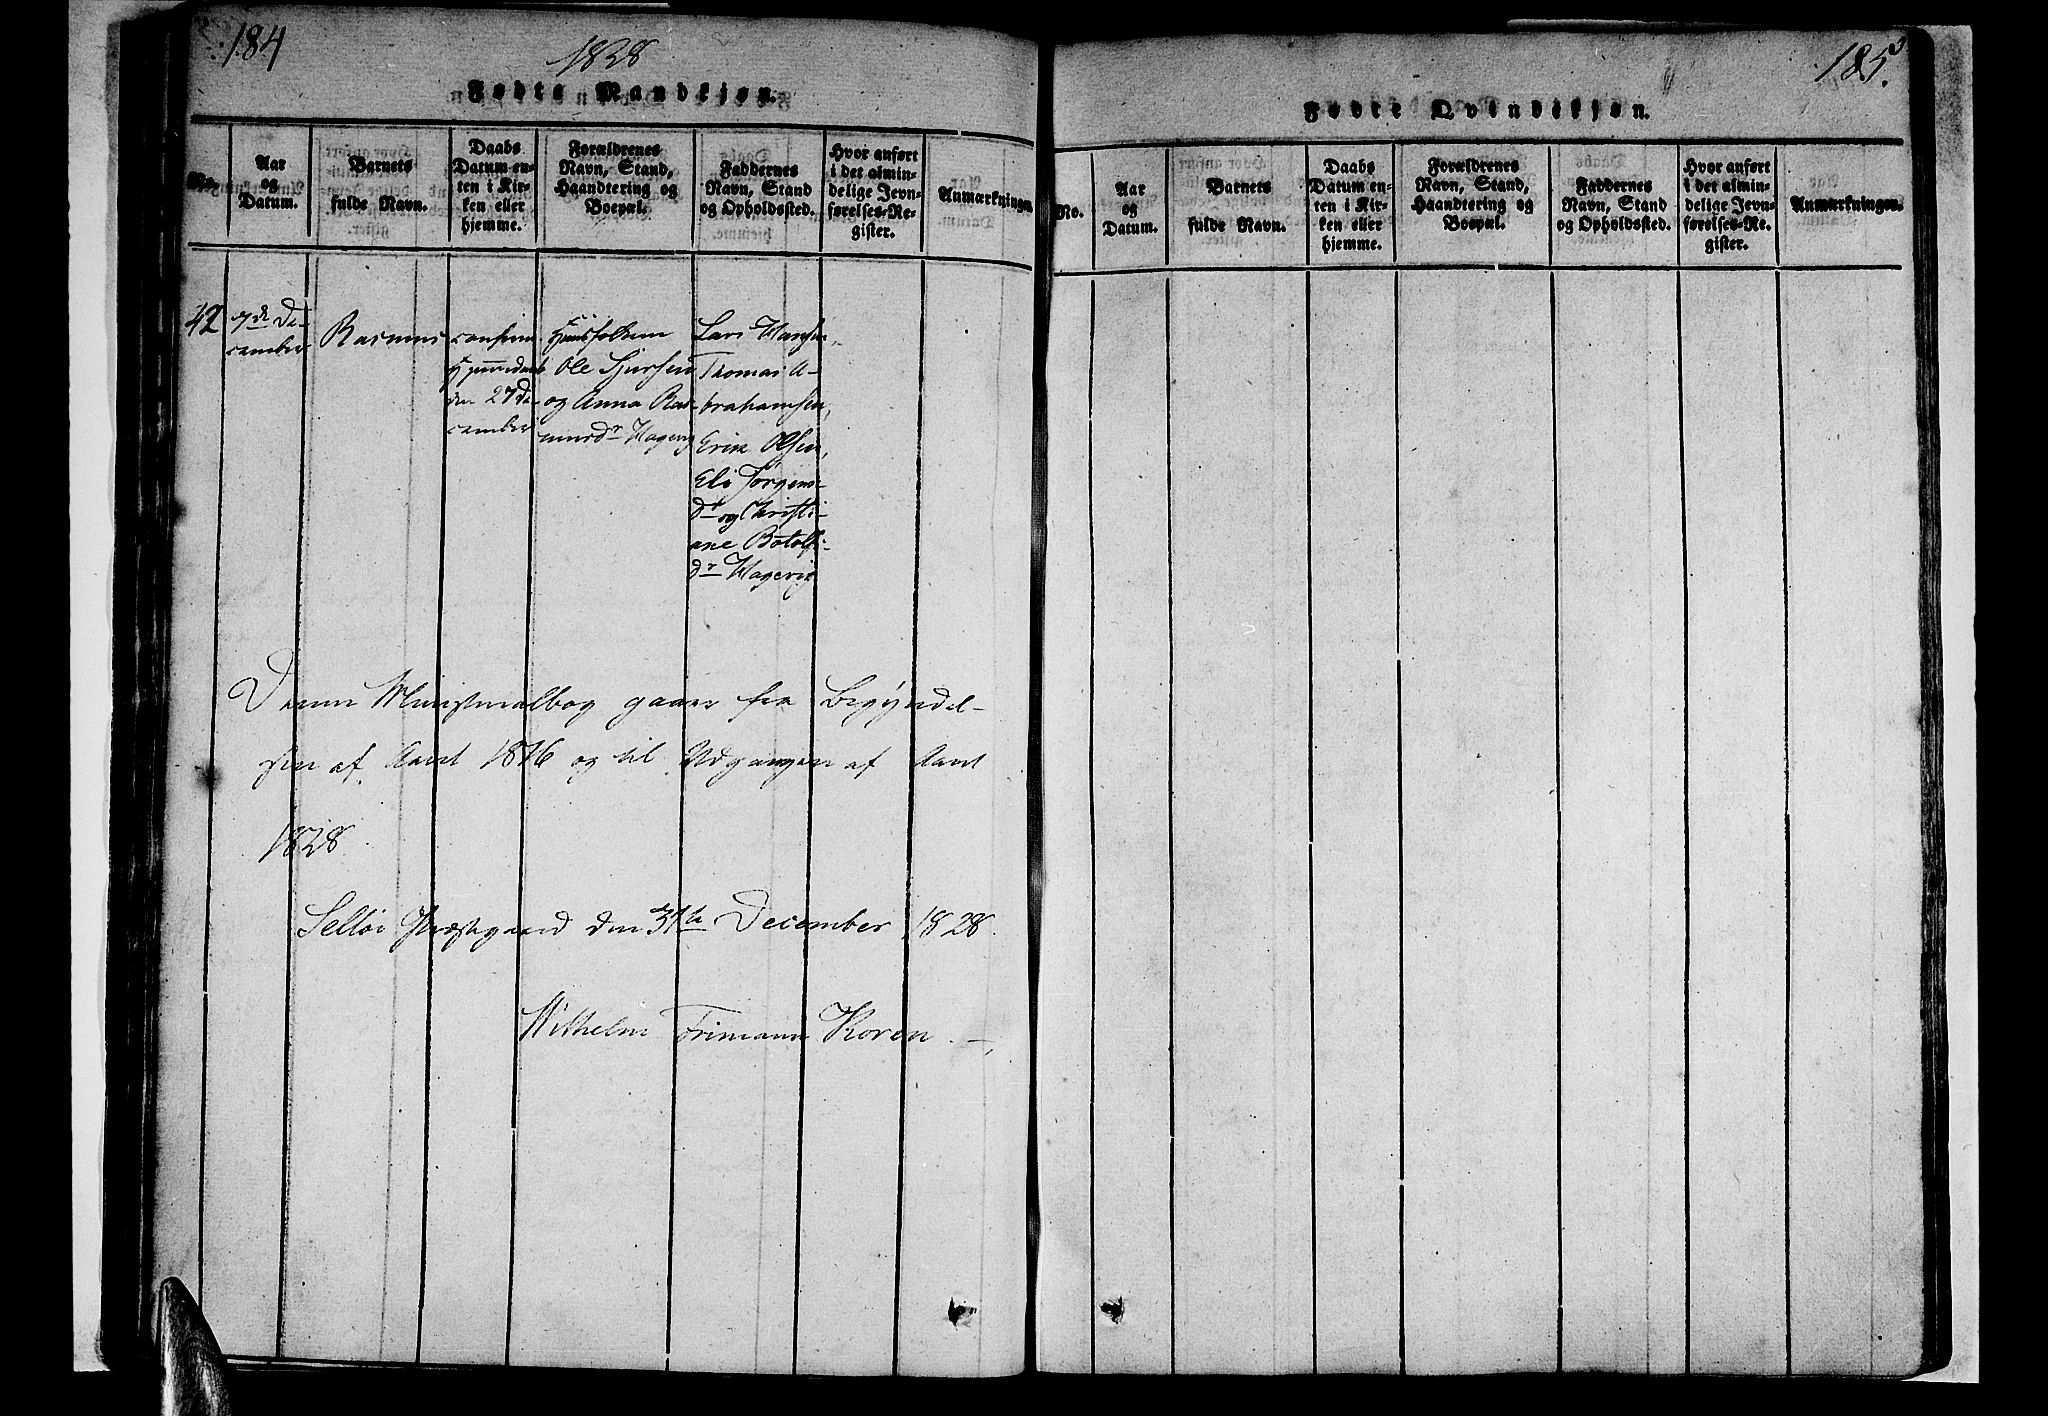 184
1828
Fødte Mandkjøn.
No.
Aar
og
Datum.
Barnets
fulde Navn.
Daabs
Datum en-
ten i Kir-
ken eller
hjemme.
Forældrenes
Navn, Stand,
Haandtering og
Boepæl.
Faddernes
Navn, Stand
og Opholdssted.
Hvor anført
i det almin-
delige Jevn-
førelses-Re-
gister.
Anmærkninger.
42
7de De-
cember
Rasmus
den 27 De-
cember
Huusfolkene
Ole Sjursen
og Anna Ras-
musdr Hagevig
Lars Hansen,
Thomas A-
brahamsen,
Erik Olsen,
Eli Jørgens-
dr og Christi-
ane Botolfs-
dr Hagevig
Denne Ministerialbog gaaer fra Begyndel-
sen af Aaret 1816 og til Udgangen af Aaret
1828.
Selløe Præstegaard den 31te December 1828.
Wilhelm Frimann Koren
185
Fødte Qvindekjøn.
No.
Aar
og
Datum.
Barnets
fulde Navn.
Daabs
Datum en-
ten i Kir-
ken eller
hjemme.
Forældrenes
Navn, Stand,
Haandtering og
Boepæl.
Faddernes
Navn, Stand
og Opholdssted.
Hvor anført
i det almin-
delige Jevn-
førelses-Re-
gister.
Anmærkninger.